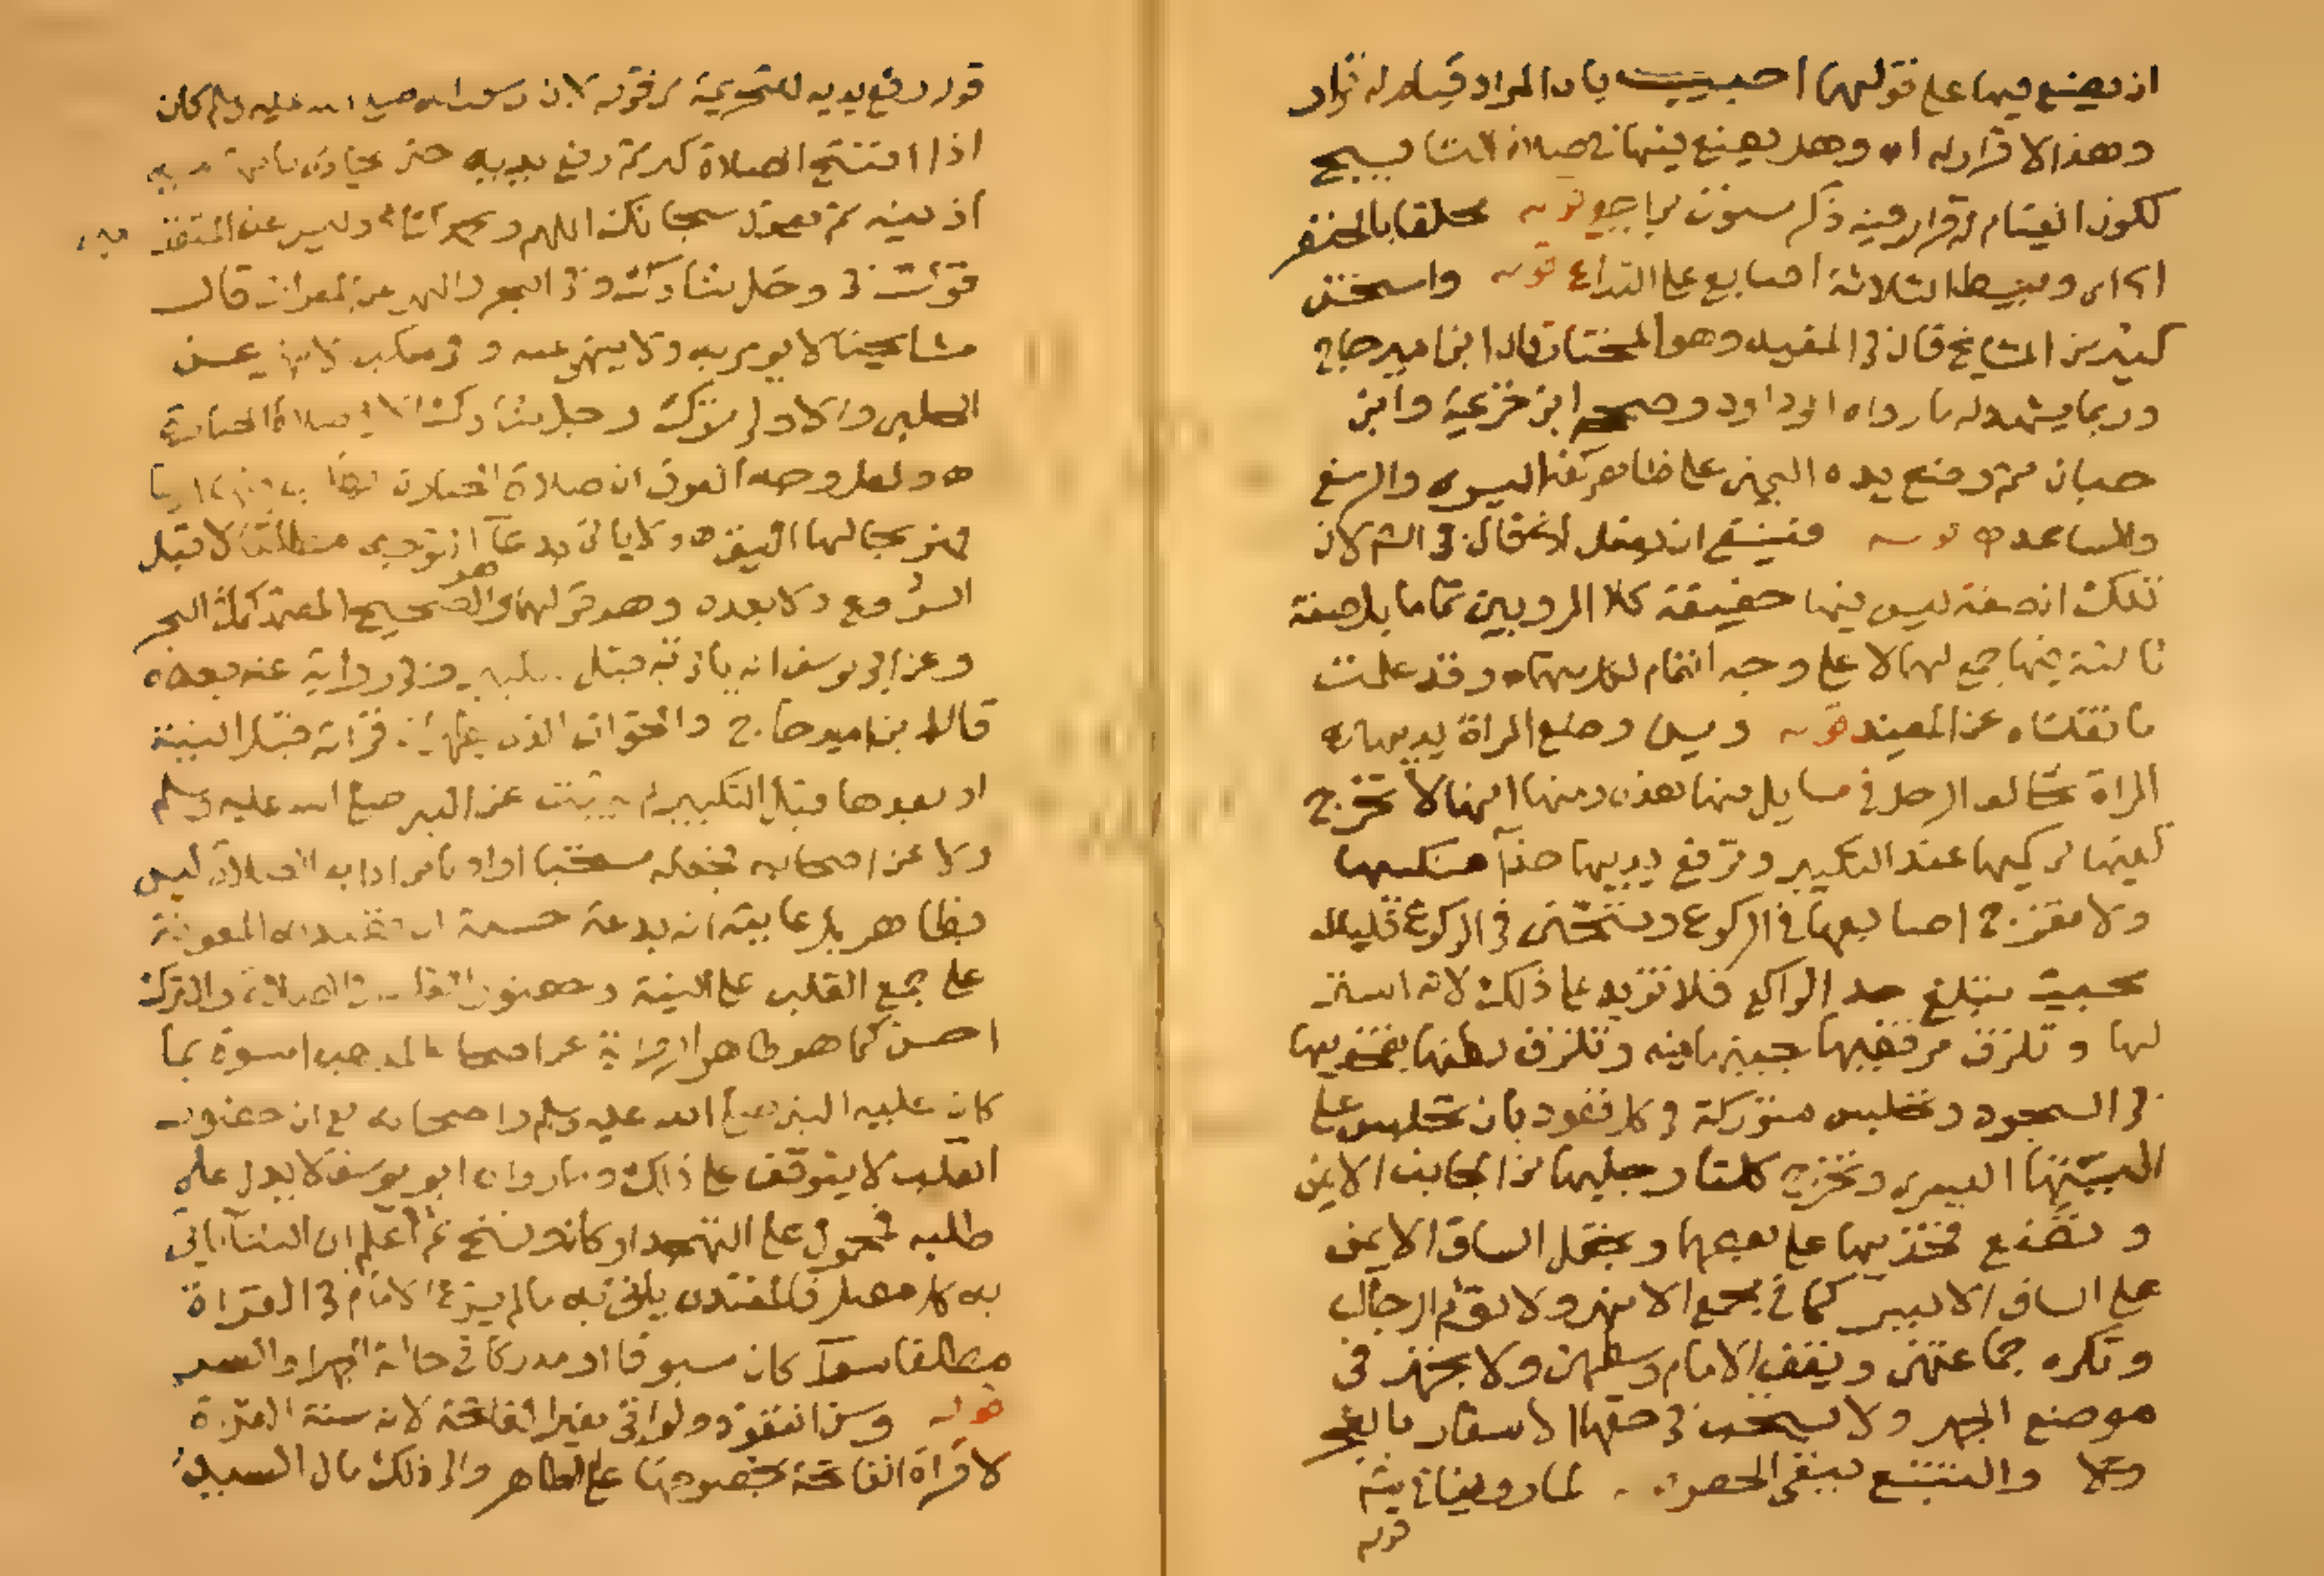 ان يضع فيها على قولهما اجيب بان المراد قيام له قرار
وهذا لا قرار له اه وهل يضع فيها في صلاة التسابيح
لكون القيام له قرار فيه ذكر مسنون يراجع قوله محلقا بالخنصر
اي ويبسط الثلاثة اصابع على الذراع قوله واستحسن
كثير من المشايخ قال في المفيد وهو المختار قال ابن امير حاج
وربما يشهد له ما رواه ابو داود وصححه ابن خزيمة وابن
حبان ثم وضع يده اليمنى على ظاهر كفه اليسرى والرسغ
والساعد اه قوله فينبغي ان يفعل الخ قال في الشر لان
تلك الصفة ليس فيها حقيقة كلا المرويين تماما بل صفة
ثالثة فيها جمع لهما لا على وجه التمام لكل منهما اه وقد علمت
ما نقلناه عن المفيد قوله ويسن وضع المراة يديها الخ
المراة تخالف الرجل في مسايل منها هذه ومنها انها لا تخرج
كفيها من كميها عند التكبير وترفع يديها حذآ منكبيها
ولا تفرج اصابعها في الركوع وتنحني في الركوع قليلا
بحيث تبلغ حد الراكع فلا تزيد على ذلك لانه استر
لها وتلزق مرفقيها بجنبيها فيه وتلزق بطنها بفخذيها
في السجود وتجلس متوركة في كل قعود بان تجلس على
اليتها اليسرى وتخرج كلتا رجليها من الجانب الايمن
وتضع فخذيها على بعضهما وتجعل الساق الايمن
على الساق الايسر كما في مجمع الانهر ولا تؤم الرجال
وتكره جماعتهن ويقف الامام وسطهن ولا تجهر في
موضع الجهر ولا يستحب في حقها الاسفار بالفجر
والتتبع ينفي الحصر قوله لما روينا في يثم
قوله
قوله رفع يديه للتحريمة من قوله لان رسول الله صلى الله عليه وسلم كان
اذا افتتح الصلاة كبر ثم رفع يديه حتى يحاذي بابهاميه
اذنيه ثم يقول سبحانك اللهم وبحمدك الخ وليس عن المتقدمين
قوله وجل ثناؤك وفي البحر والنهر عن المعراج قال
مشايخنا لا يومر به ولا ينهى عنه وفي سكب الانهر عن
الحلبي والاولى ترك وجل ثناؤك الا في صلاة الجنازة
اه ولعل وجه الفرق ان صلاة الجنازة
اه ولا ياتي بدعآ التوجه مطلقا لا قبل
الشروع ولا بعده وهو قولهما هو الصحيح المعتمد كما في البحر
وعن ابي يوسف انه ياتي به قبل التكبير وفي رواية عنه بعده
قال ابن امير حاج والحق ان الذي يظهر ان قراته قبل النية
او بعدها قبل التكبير لم يثبت عن النبي صلى الله عليه وسلم
ولا عن اصحابه فجعله مستحبا او ادبا من اداب الصلاة ليس
بظاهر بل غايته انه بدعة حسنة ان قصد به المعونة
على جمع القلب على النية وحضور القلب في الصلاة والترك
احسن كما هو ظاهر الرواية عن اصحاب المذهب اسوة بما
كان عليه النبي صلى الله عليه وسلم واصحابه مع ان حضور
القلب لا يتوقف على ذلك وما رواه ابو يوسف لا يدل على
طلبه فمحمول على التهجد او كان ونسخ ثم اعلم ان الثنآ ياتي
به كل مصل فالمقتدي ياتي به ما لم يشرع الامام في القراة
مطلقا سوآ كان مسبوقا او مدركا في حالة الجهر والسر
قوله وسن التعوذ ولو اتى بغير الفاتحة لانه سنة القراة
لا قراة الفاتحة بخصوصها على الظاهر والى ذلك مال السيد